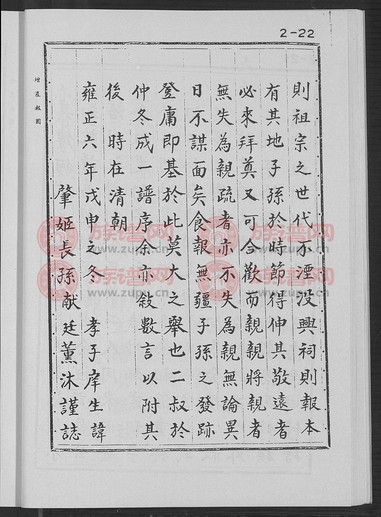 2-22
則祖宗之世代不湮没興祠則報本
有其地子孫於時節得伸其敬遠者
必來拜奠又可合歡而親親將親者
無失為親疏者亦不失為親無論異
日不謀面矣食報無疆子孫之發跡
登庸即基於此莫大之舉也二叔於
仲冬成一譜序余亦敘數言以附其
後 時在清朝
雍正六年戊申之冬 孝子庠生諱
肇姬長孫献廷薰沐謹誌
族谱网
www.zupu.cn
族谱网
www.zupu.cn